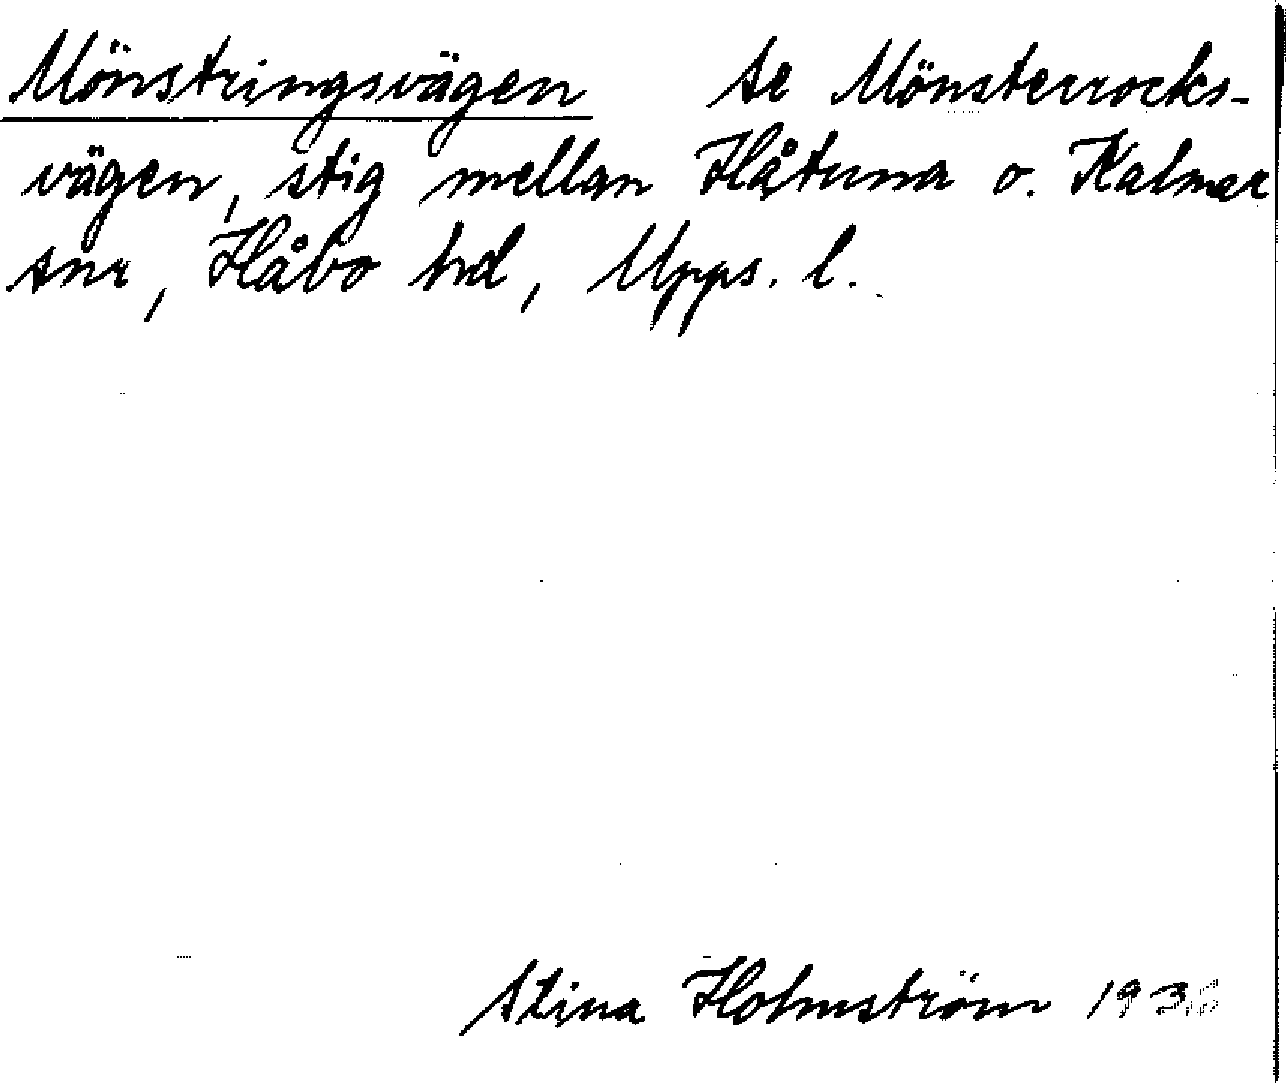 Mönstringsvägen se Mönsterrocks-
vägen, stig mellan Håtuna o. Kalmar
snr, Håbo hd, Upps. l.
Stina Holmström